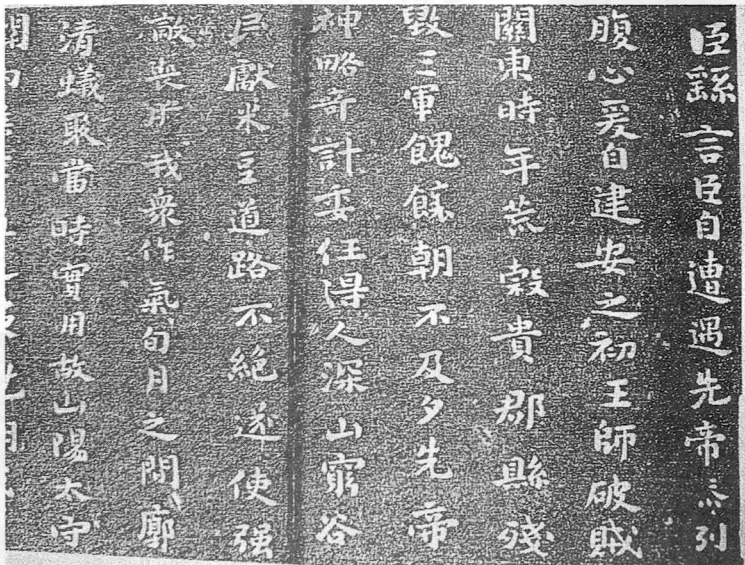 臣繇言臣自遭遇先帝忝列
腹心爰自建安之初王師破賊
關東時年荒穀貴郡縣殘
毀三軍餽饟朝不及夕先帝
神略奇計委任得人深山窮谷
民獻米豆道路不絕遂使强
敵喪膽我衆作氣旬月之間廓
清蟻聚當時實用故山陽太守